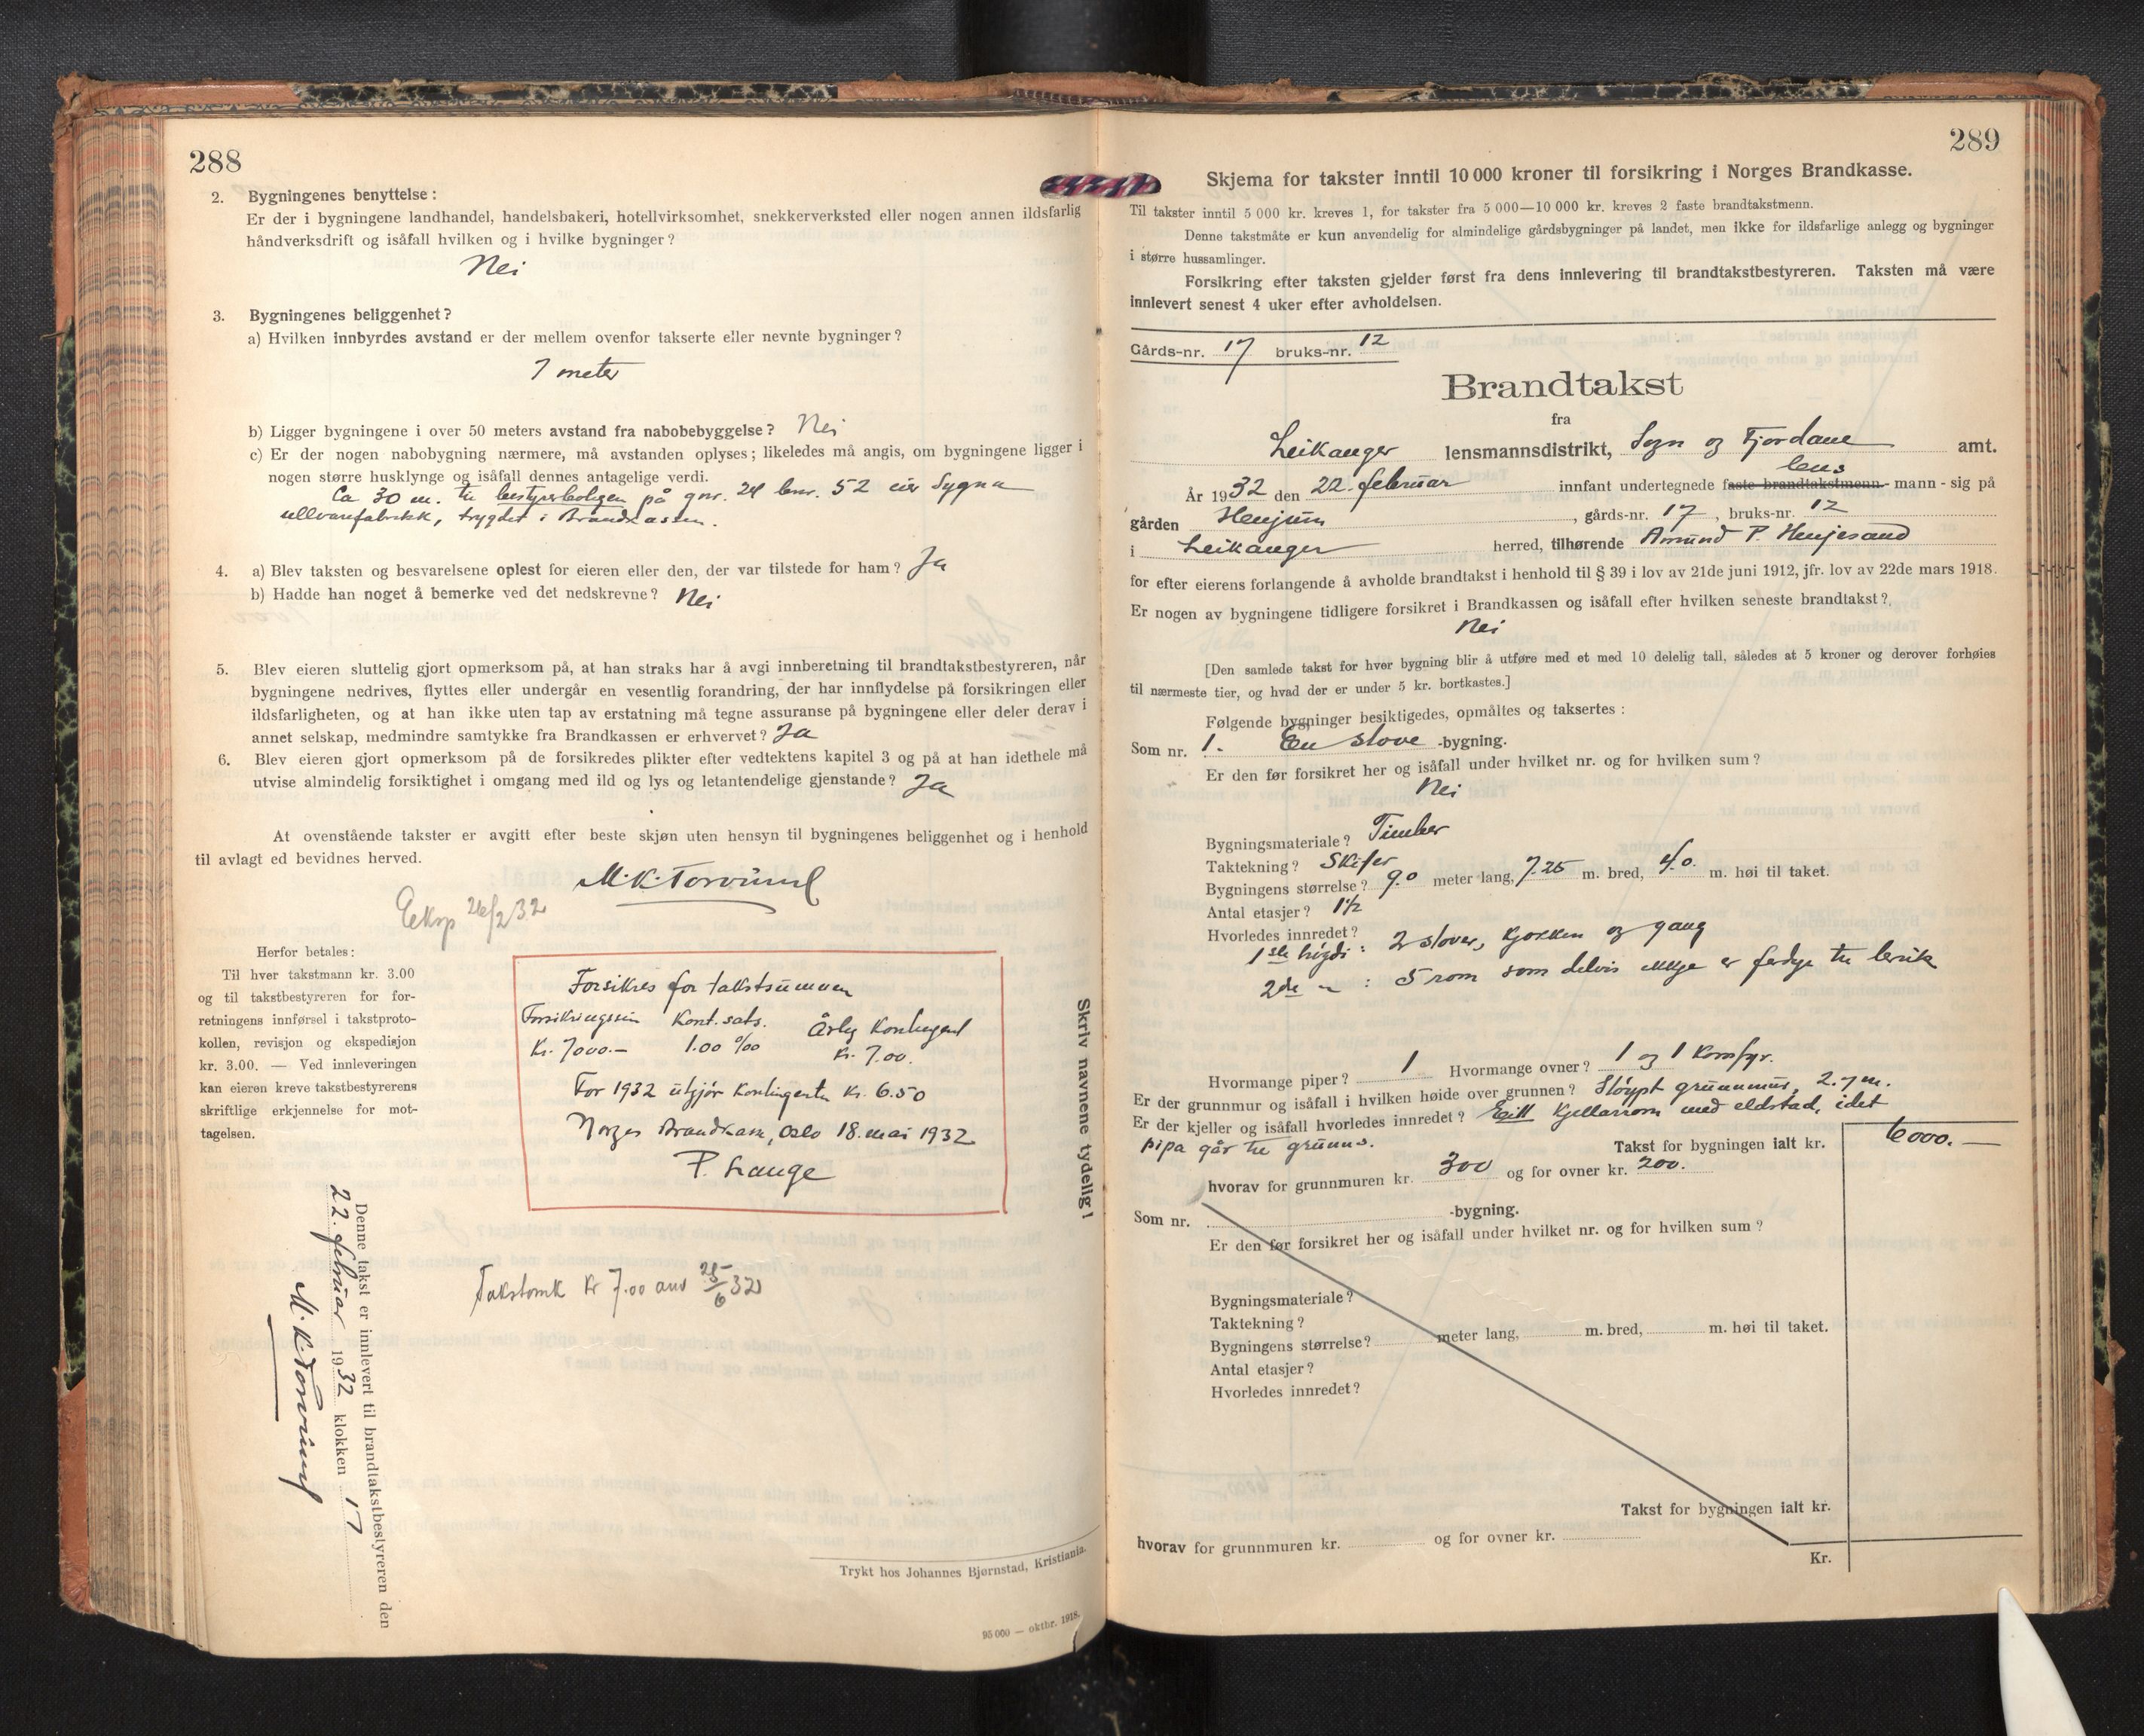 288
2. Bygningenes benyttelse:
Er der i bygningene landhandel, handelsbakeri, hotellvirksomhet, snekkerverksted eller nogen annen ildsfarlig
håndverksdrift og isåfall hvilken og i hvilke bygninger?
Nei
3. Bygningenes beliggenhet?
a) Hvilken innbyrdes avstand er der mellem ovenfor takserte eller nevnte bygninger?
7 meter
b) Ligger bygningene i over 50 meters avstand fra nabobebyggelse? Nei
c) Er der nogen nabobygning nærmere, må avstanden oplyses; likeledes må angis, om bygningene ligger i
nogen større husklynge og isåfall dennes antagelige verdi.
Ca 30 m. til bestyrerboligen på gnr. 24 bnr. 52 eier Sygna
ullvarefabrikk, trygdet i Brandkassen.
4. a) Blev taksten og besvarelsene oplest for eieren eller den, der var tilstede for ham? Ja
b) Hadde han noget å bemerke ved det nedskrevne? Nei
5. Blev eieren sluttelig gjort opmerksom på, at han straks har å avgi innberetning til brandtakstbestyreren, når
bygningene nedrives, flyttes eller undergår en vesentlig forandring, der har innflydelse på forsikringen eller
ildsfarligheten, og at han ikke uten tap av erstatning må tegne assuranse på bygningene eller deler derav i
annet selskap, medmindre samtykke fra Brandkassen er erhvervet? Ja
6. Blev eieren gjort opmerksom på de forsikredes plikter efter vedtektens kapitel 3 og på at han idethele må
utvise almindelig forsiktighet i omgang med ild og lys og letantendelige gjenstande? Ja
At ovenstående takster er avgitt efter beste skjøn uten hensyn til bygningenes beliggenhet og i henhold
til avlagt ed bevidnes herved.
M. K. Torvund
Eksp 26/2 32
Herfor betales:
Til hver takstmann kr. 3.00
og til takstbestyreren for for-
retningens innførsel i takstproto-
kollen, revisjon og ekspedisjon
kr. 3.00. — Ved innleveringen
kan eieren kreve takstbestyrerens
skriftlige erkjennelse for mot-
tagelsen.
Forsikres for takstsummen
Forsikringssum Kont. sats. Årlig Kontingent
Kr. 7000.— 1.00 ‰ Kr. 7.00.
For 1932 utgjør kontingenten kr. 6.50
Norges Brandkasse, Oslo 18. mai 1932
P. Lange
Takstomk kr 7.00 anv 25/6 32
Denne takst er innlevert til brandtakstbestyreren den
22. februar 1932 klokken 17
M. K. Torvund
Skriv navnene tydelig!
Trykt hos Johannes Bjørnstad, Kristiania.
95 000 — oktbr. 1918.
289
Skjema for takster inntil 10 000 kroner til forsikring i Norges Brandkasse.
Til takster inntil 5 000 kr. kreves 1, for takster fra 5 000—10 000 kr. kreves 2 faste brandtakstmenn.
Denne takstmåte er kun anvendelig for almindelige gårdsbygninger på landet, men ikke for ildsfarlige anlegg og bygninger
i større hussamlinger.
Forsikring efter taksten gjelder først fra dens innlevering til brandtakstbestyreren. Taksten må være
innlevert senest 4 uker efter avholdelsen.
Gårds-nr. 17 bruks-nr. 12
Brandtakst
fra
Leikanger lensmannsdistrikt, Sogn og Fjordane amt.
lens
År 1932 den 22. februar innfant undertegnede faste brandtakstmenn - mann - sig på
gården Henjum, gårds-nr. 17, bruks-nr. 12
i Leikanger herred, tilhørende Amund P. Henjesand
for efter eierens forlangende å avholde brandtakst i henhold til § 39 i lov av 21de juni 1912, jfr. lov av 22de mars 1918.
Er nogen av bygningene tidligere forsikret i Brandkassen og isåfall efter hvilken seneste brandtakst?
Nei
[Den samlede takst for hver bygning blir å utføre med et med 10 delelig tall, således at 5 kroner og derover forhøies
til nærmeste tier, og hvad der er under 5 kr. bortkastes.]
Følgende bygninger besiktigedes, opmåltes og taksertes:
Som nr. 1. En stove -bygning.
Er den før forsikret her og isåfall under hvilket nr. og for hvilken sum?
Nei
Bygningsmateriale? Timber
Taktekning? Skifer
Bygningens størrelse? 9.0 meter lang, 7.25 m. bred, 4.0. m. høi til taket.
Antal etasjer? 1½
Hvorledes innredet?
1ste høgdi: 2 stover, kjøkken og gang
2de " : 5 rom som delvis ikkje er ferdge til bruk
Hvormange piper? 1 Hvormange ovner? 1 og 1 komfyr.
Er der grunnmur og isåfall i hvilken høide over grunnen? Støypt grunnmur, 2.7 m.
Er der kjeller og isåfall hvorledes innredet? Eitt kjellarrom med eldstad, idet
pipa går til grunns.
Takst for bygningen ialt kr. 6000.—
hvorav for grunnmuren kr. 300 og for ovner kr. 200.
Som nr. -bygning.
Er den før forsikret her og isåfall under hvilket nr. og for hvilken sum?
Bygningsmateriale?
Taktekning?
Bygningens størrelse? meter lang, m. bred, m. høi til taket.
Antal etasjer?
Hvorledes innredet?
Takst for bygningen ialt kr.
hvorav for grunnmuren kr. og for ovner kr.
Kr.